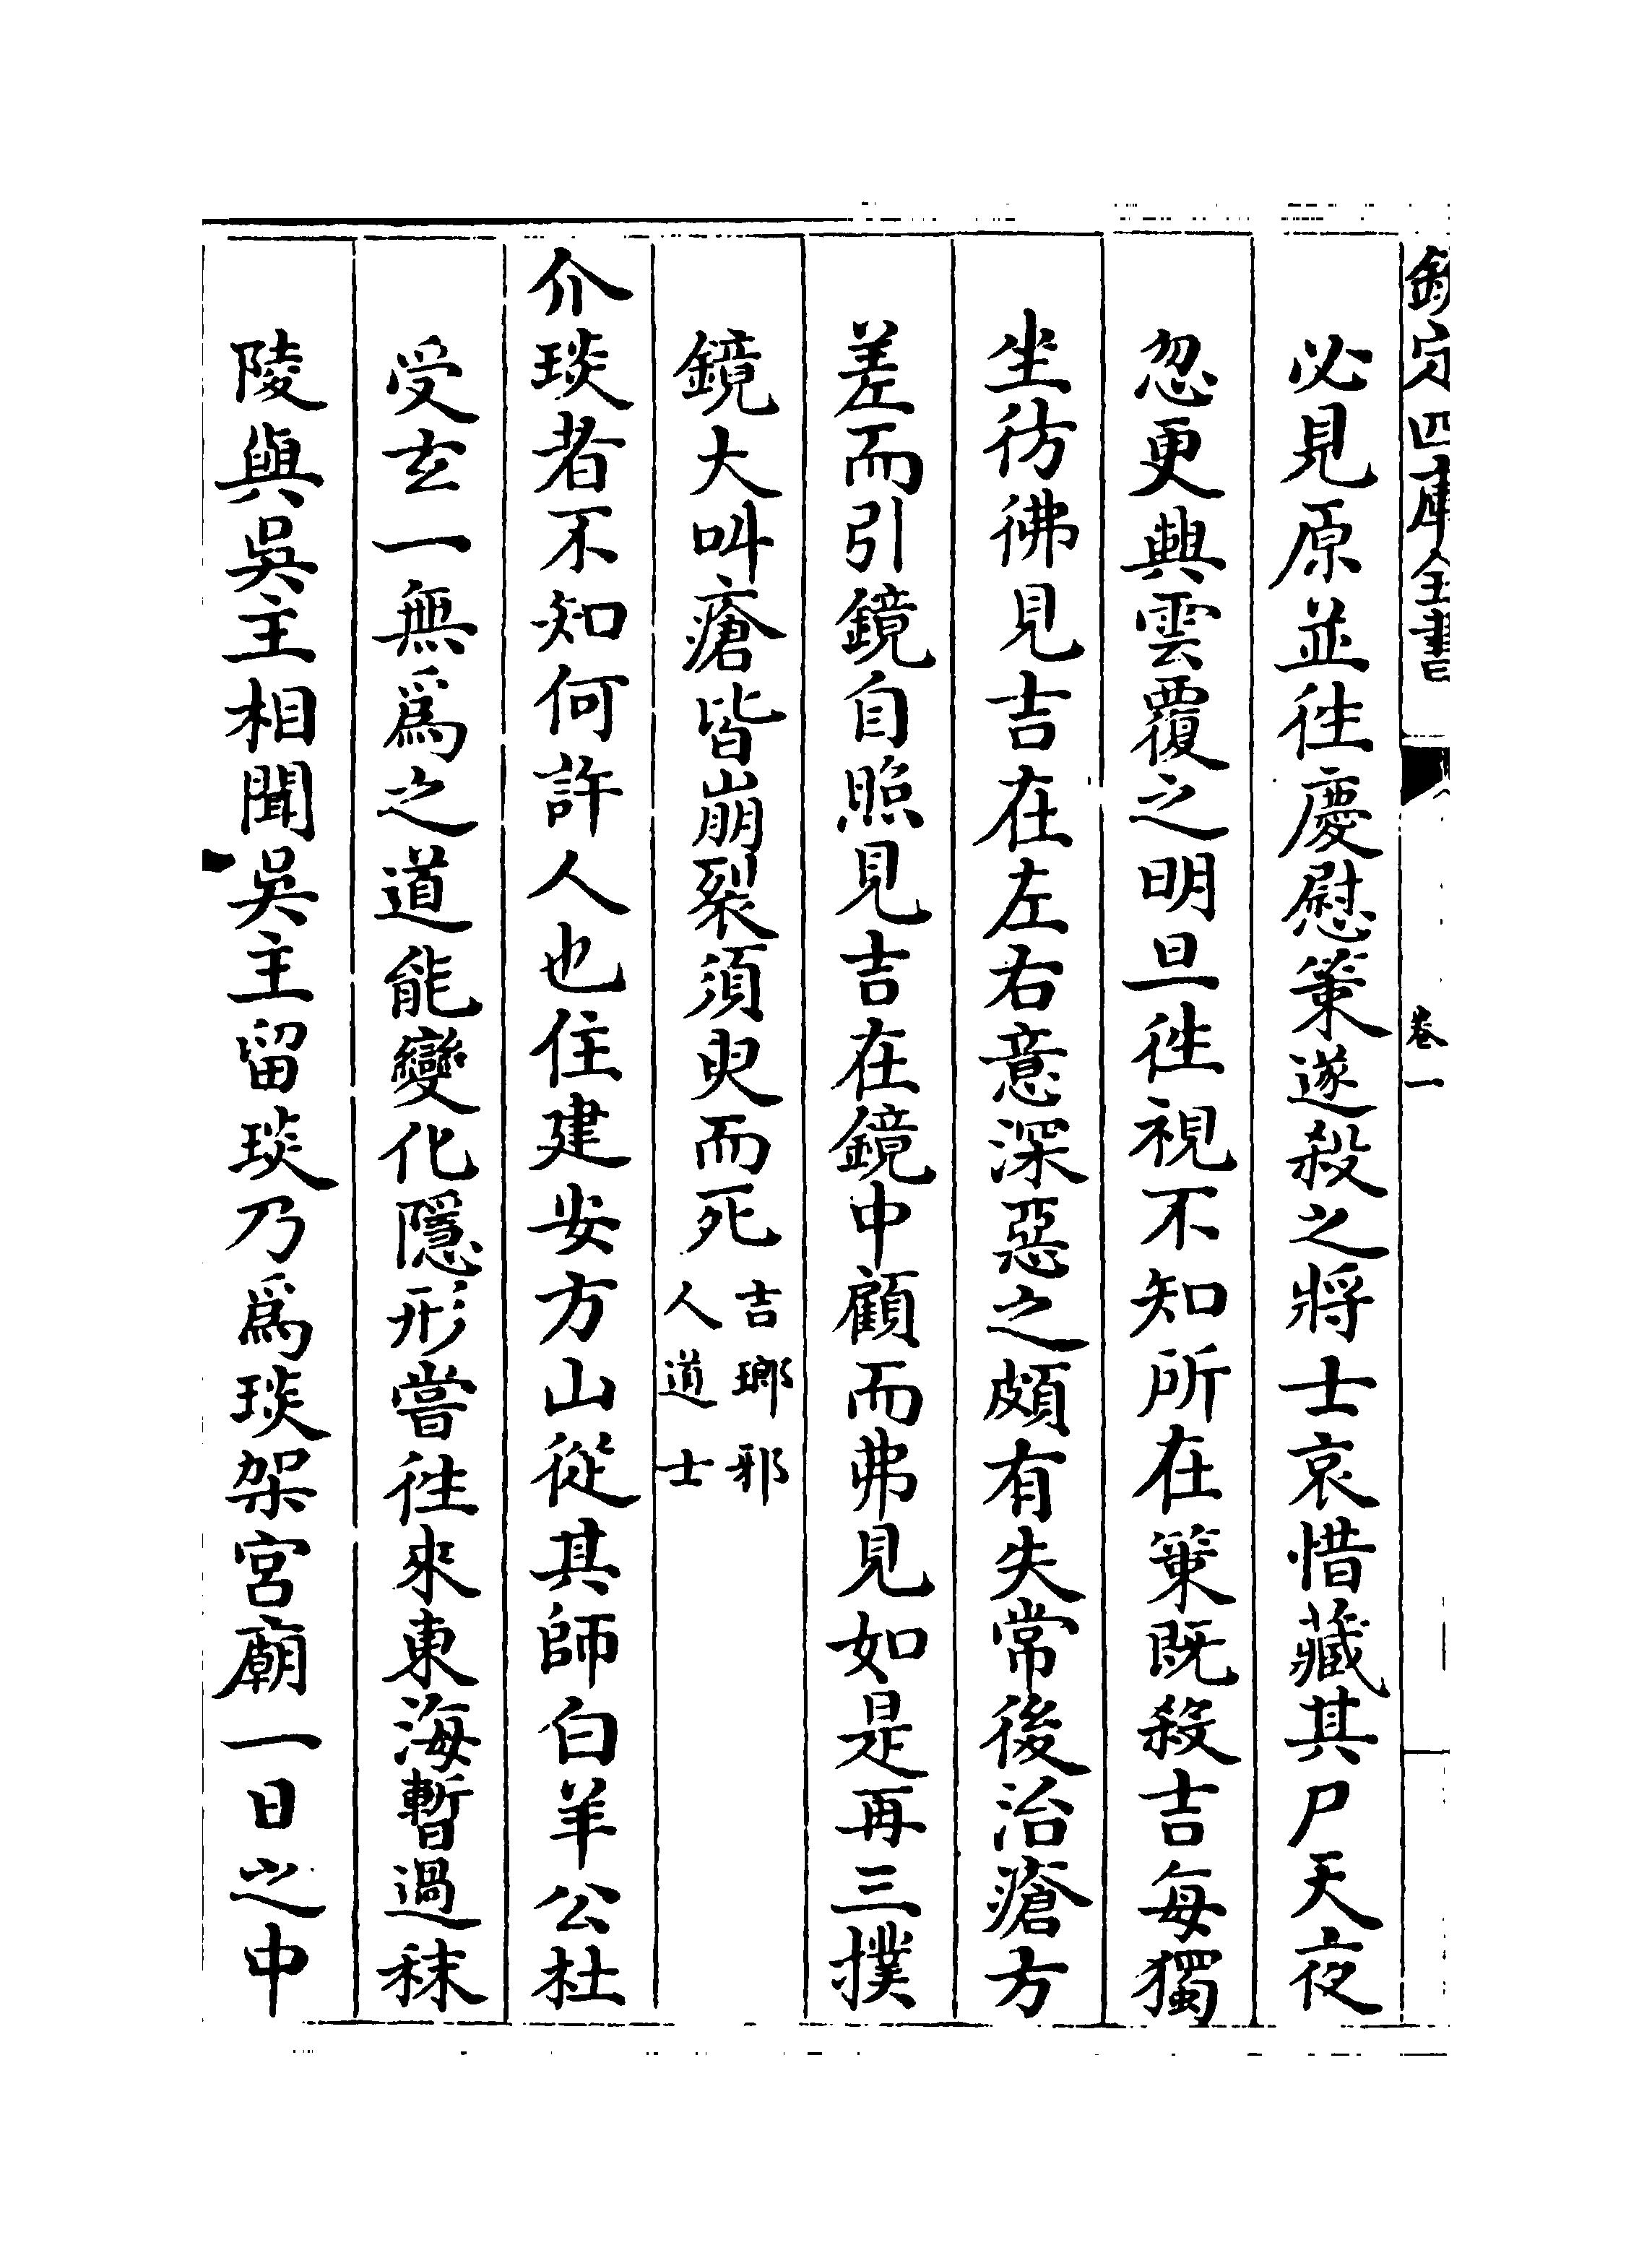 欽定四庫全書
卷一
必見原並徃慶慰策遂殺之將士哀惜藏其尸天夜
忽更興雲覆之明旦徃視不知所在策既殺吉每獨
坐彷彿見吉在左右意深惡之頗有失常後治瘡方
差而引鏡自照見吉在鏡中顧而弗見如是再三撲
鏡大叫瘡皆崩裂須臾而死吉瑯邪
人道士
介琰者不知何許人也住建安方山從其師白羊公杜
受玄一無爲之道能變化隱形嘗徃來東海暫過秣
陵與吳主相聞吳主留琰乃爲琰架宮廟一日之中